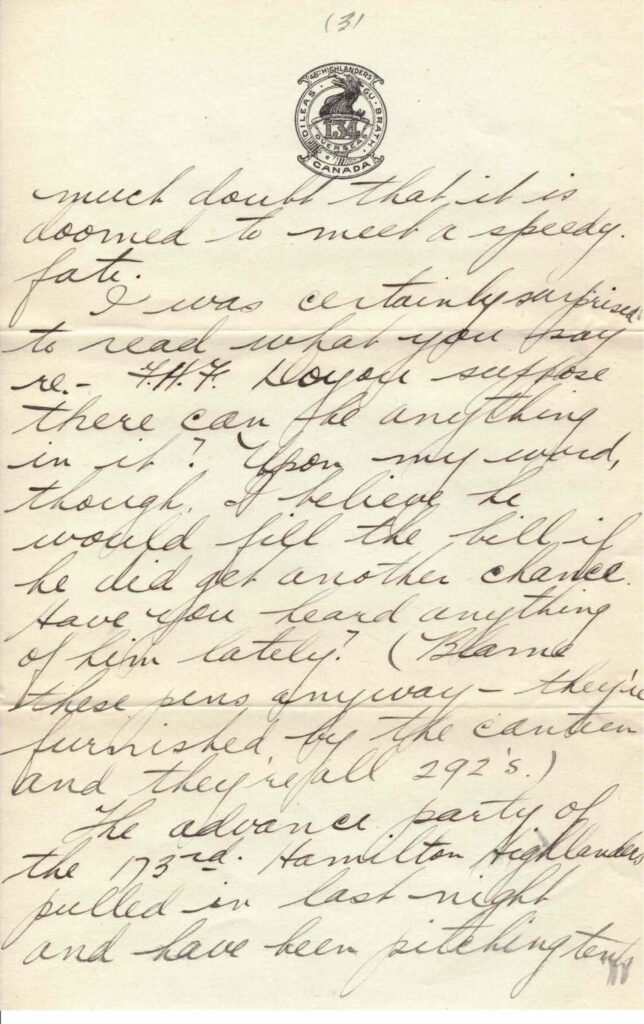 (3)
48TH HIGHLANDERS
DILEAS GU BRATH
134
OVERSEAS
CANADA
much doubt that it is
doomed to meet a speedy.
fate.
I was certainly surprised
to read what you say
re.- F.H.F. Do you suppose
there can be anything
in it? Upon my word,
though, I believe he
would fill the bill if
he did get another chance.
Have you heard anything
of him lately? (Blame
these pens anyway - they're
furnished by the canteen
and they're all 292's.)
The advance party of
the 173rd. Hamilton Highlanders
pulled in last night
and have been pitching tents